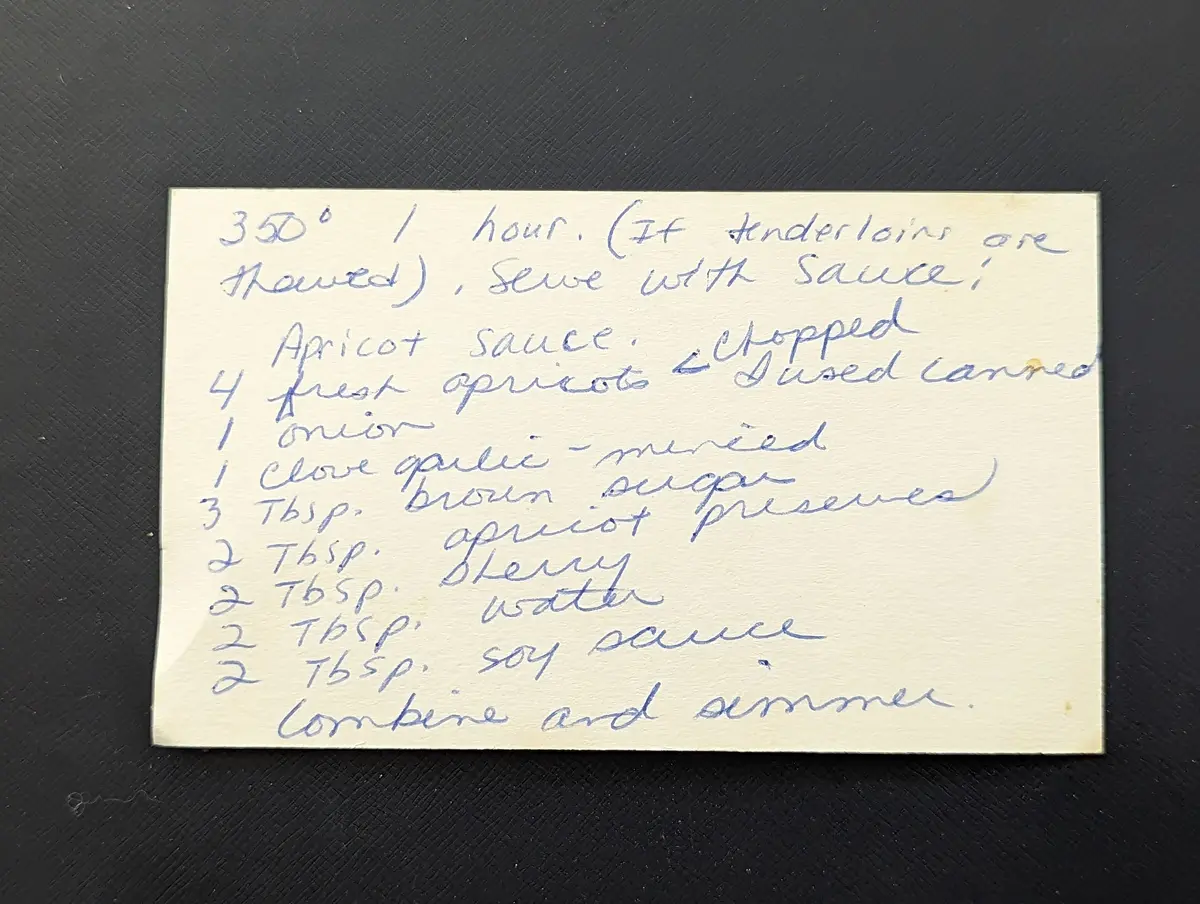 350° 1 hour. (If tenderloins are
thawed). Serve with sauce:
Apricot sauce.
4 fresh apricots < chopped
I used canned
1 onion
1 clove garlic - minced
3 Tbsp. brown sugar
2 Tbsp. apricot preserves
2 Tbsp. sherry
2 Tbsp. water
2 Tbsp. soy sauce
Combine and simmer.